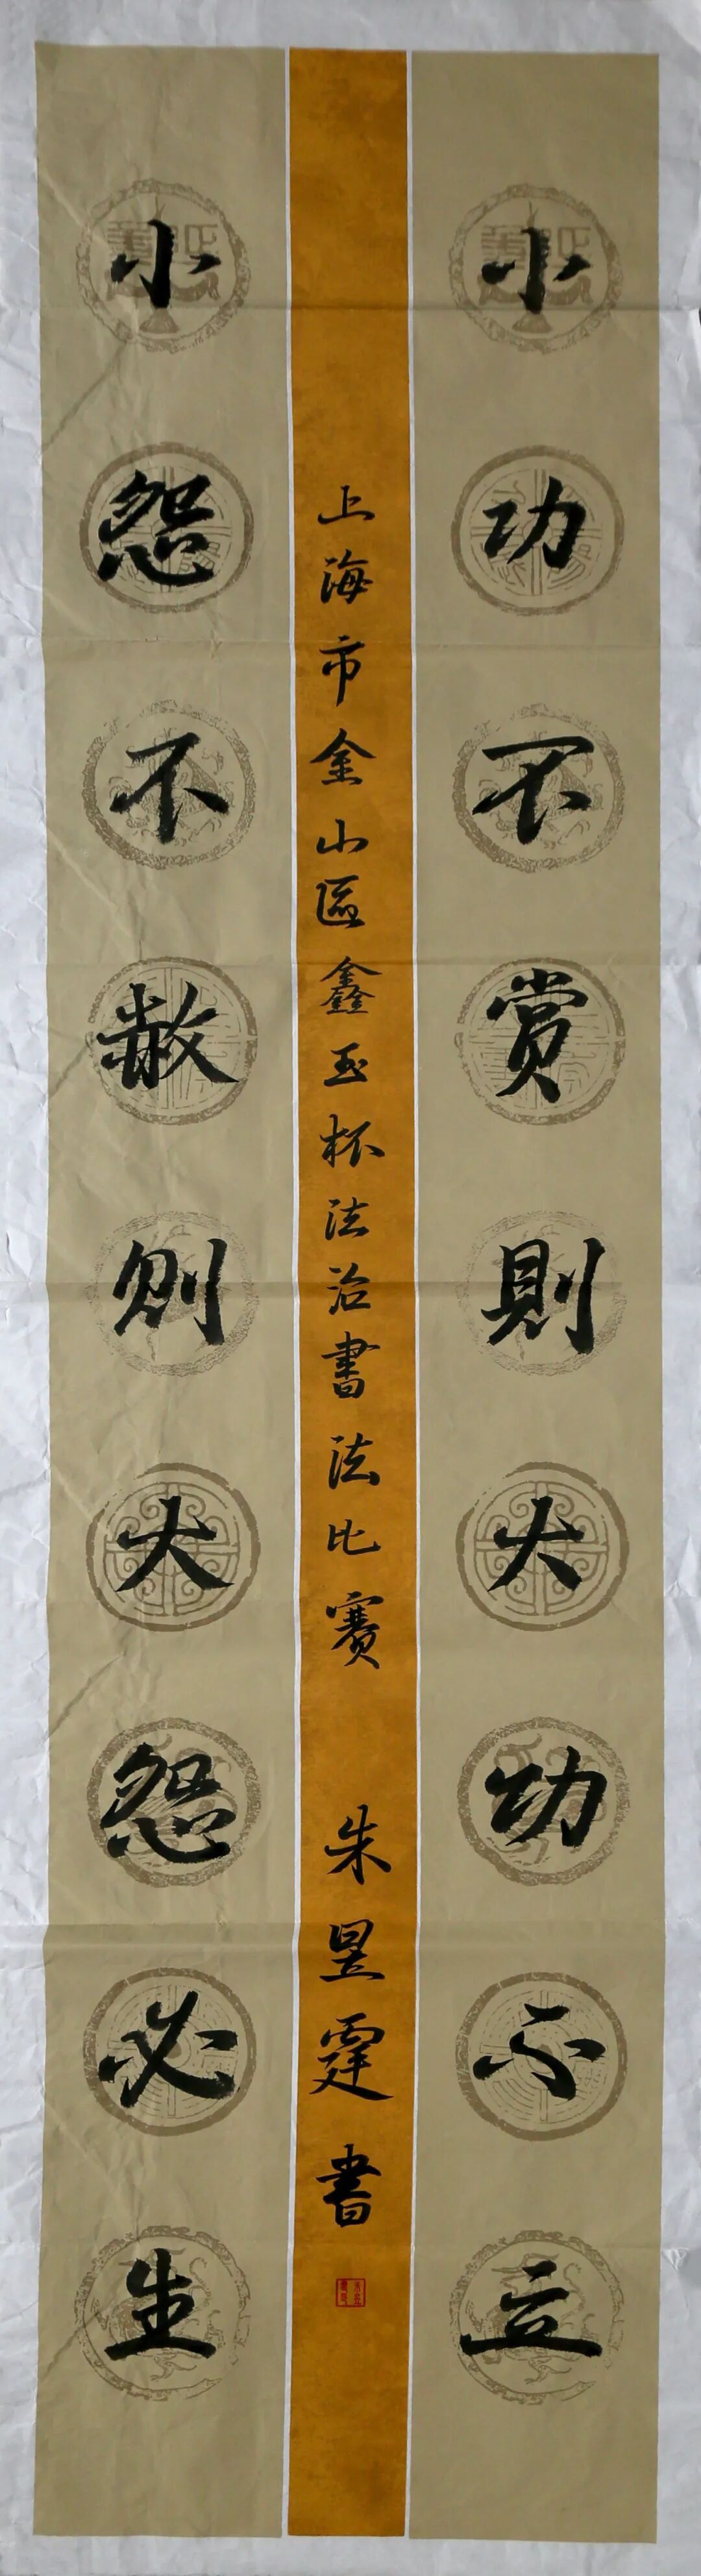 小功不賞則大功不立
小怨不赦則大怨必生
上海市金山區鑫玉杯法治書法比賽 朱昱霆書